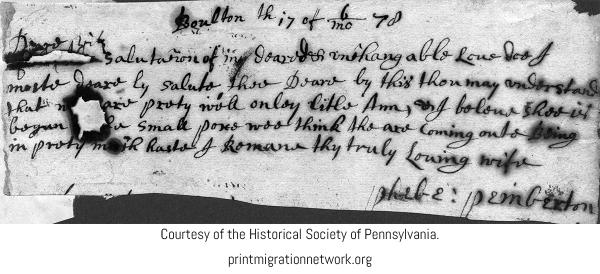 Boulton th 17 of 6 mo 78
Deare
salutation of my deare unchangable Love doe I
moste deare ly salute thee Deare by this thou may understand
that are prety well onley Litle Ann, I beleve shee is
began small poxe wee think the are Coming oute Being
in prety haste I Remane thy truly Loving wife
phebe: pemberton
Courtesy of the Historical Society of Pennsylvania.
printmigrationnetwork.org